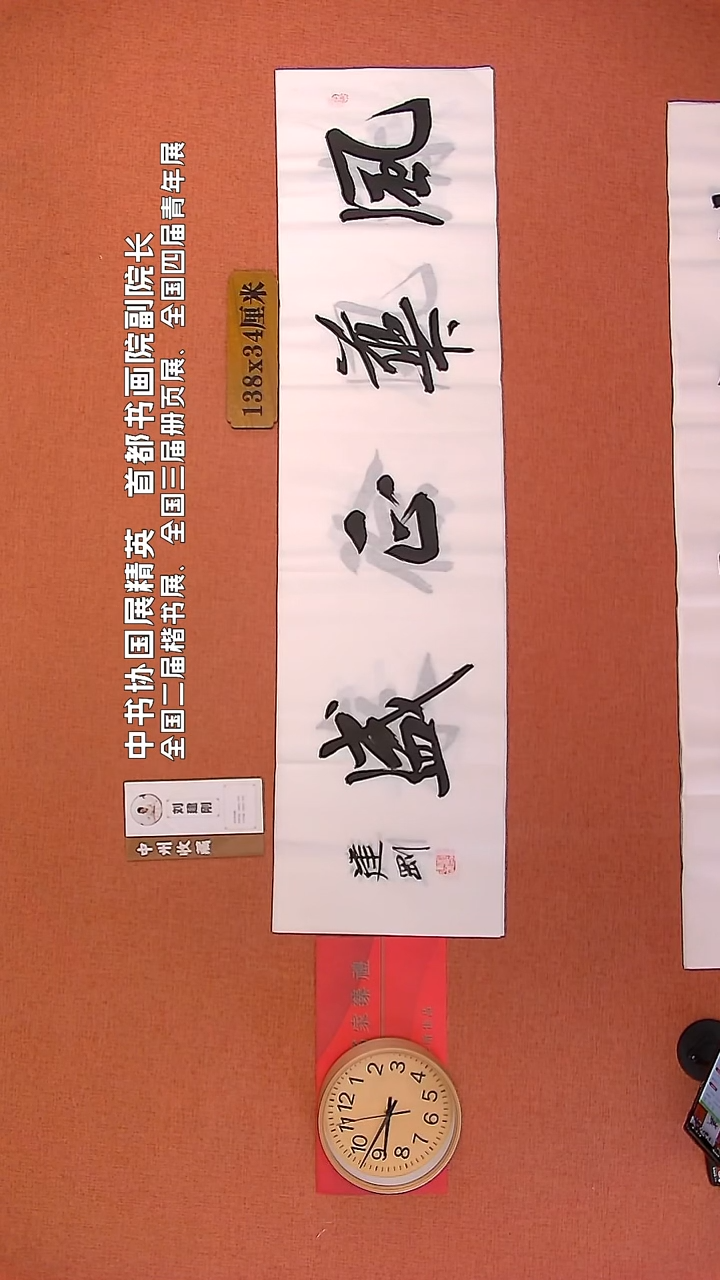 中书协国展精英 首都书画院副院长
全国二届楷书展、全国三届册页展、全国四届青年展
138x34厘米
刘建刚
中州收藏
風華正盛
建剛
12
1
2
3
4
5
6
7
8
9
10
11